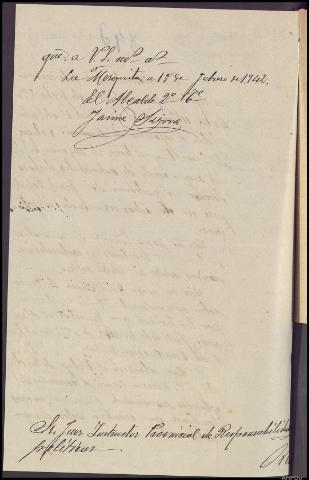 que a V. S. ms. as.
La Mezquita a 18 de Febrero de 1942.
El Alcalde 2º Tte
Jaime
Sr. Juez Instructor Provincial de Responsabilidades
políticas.